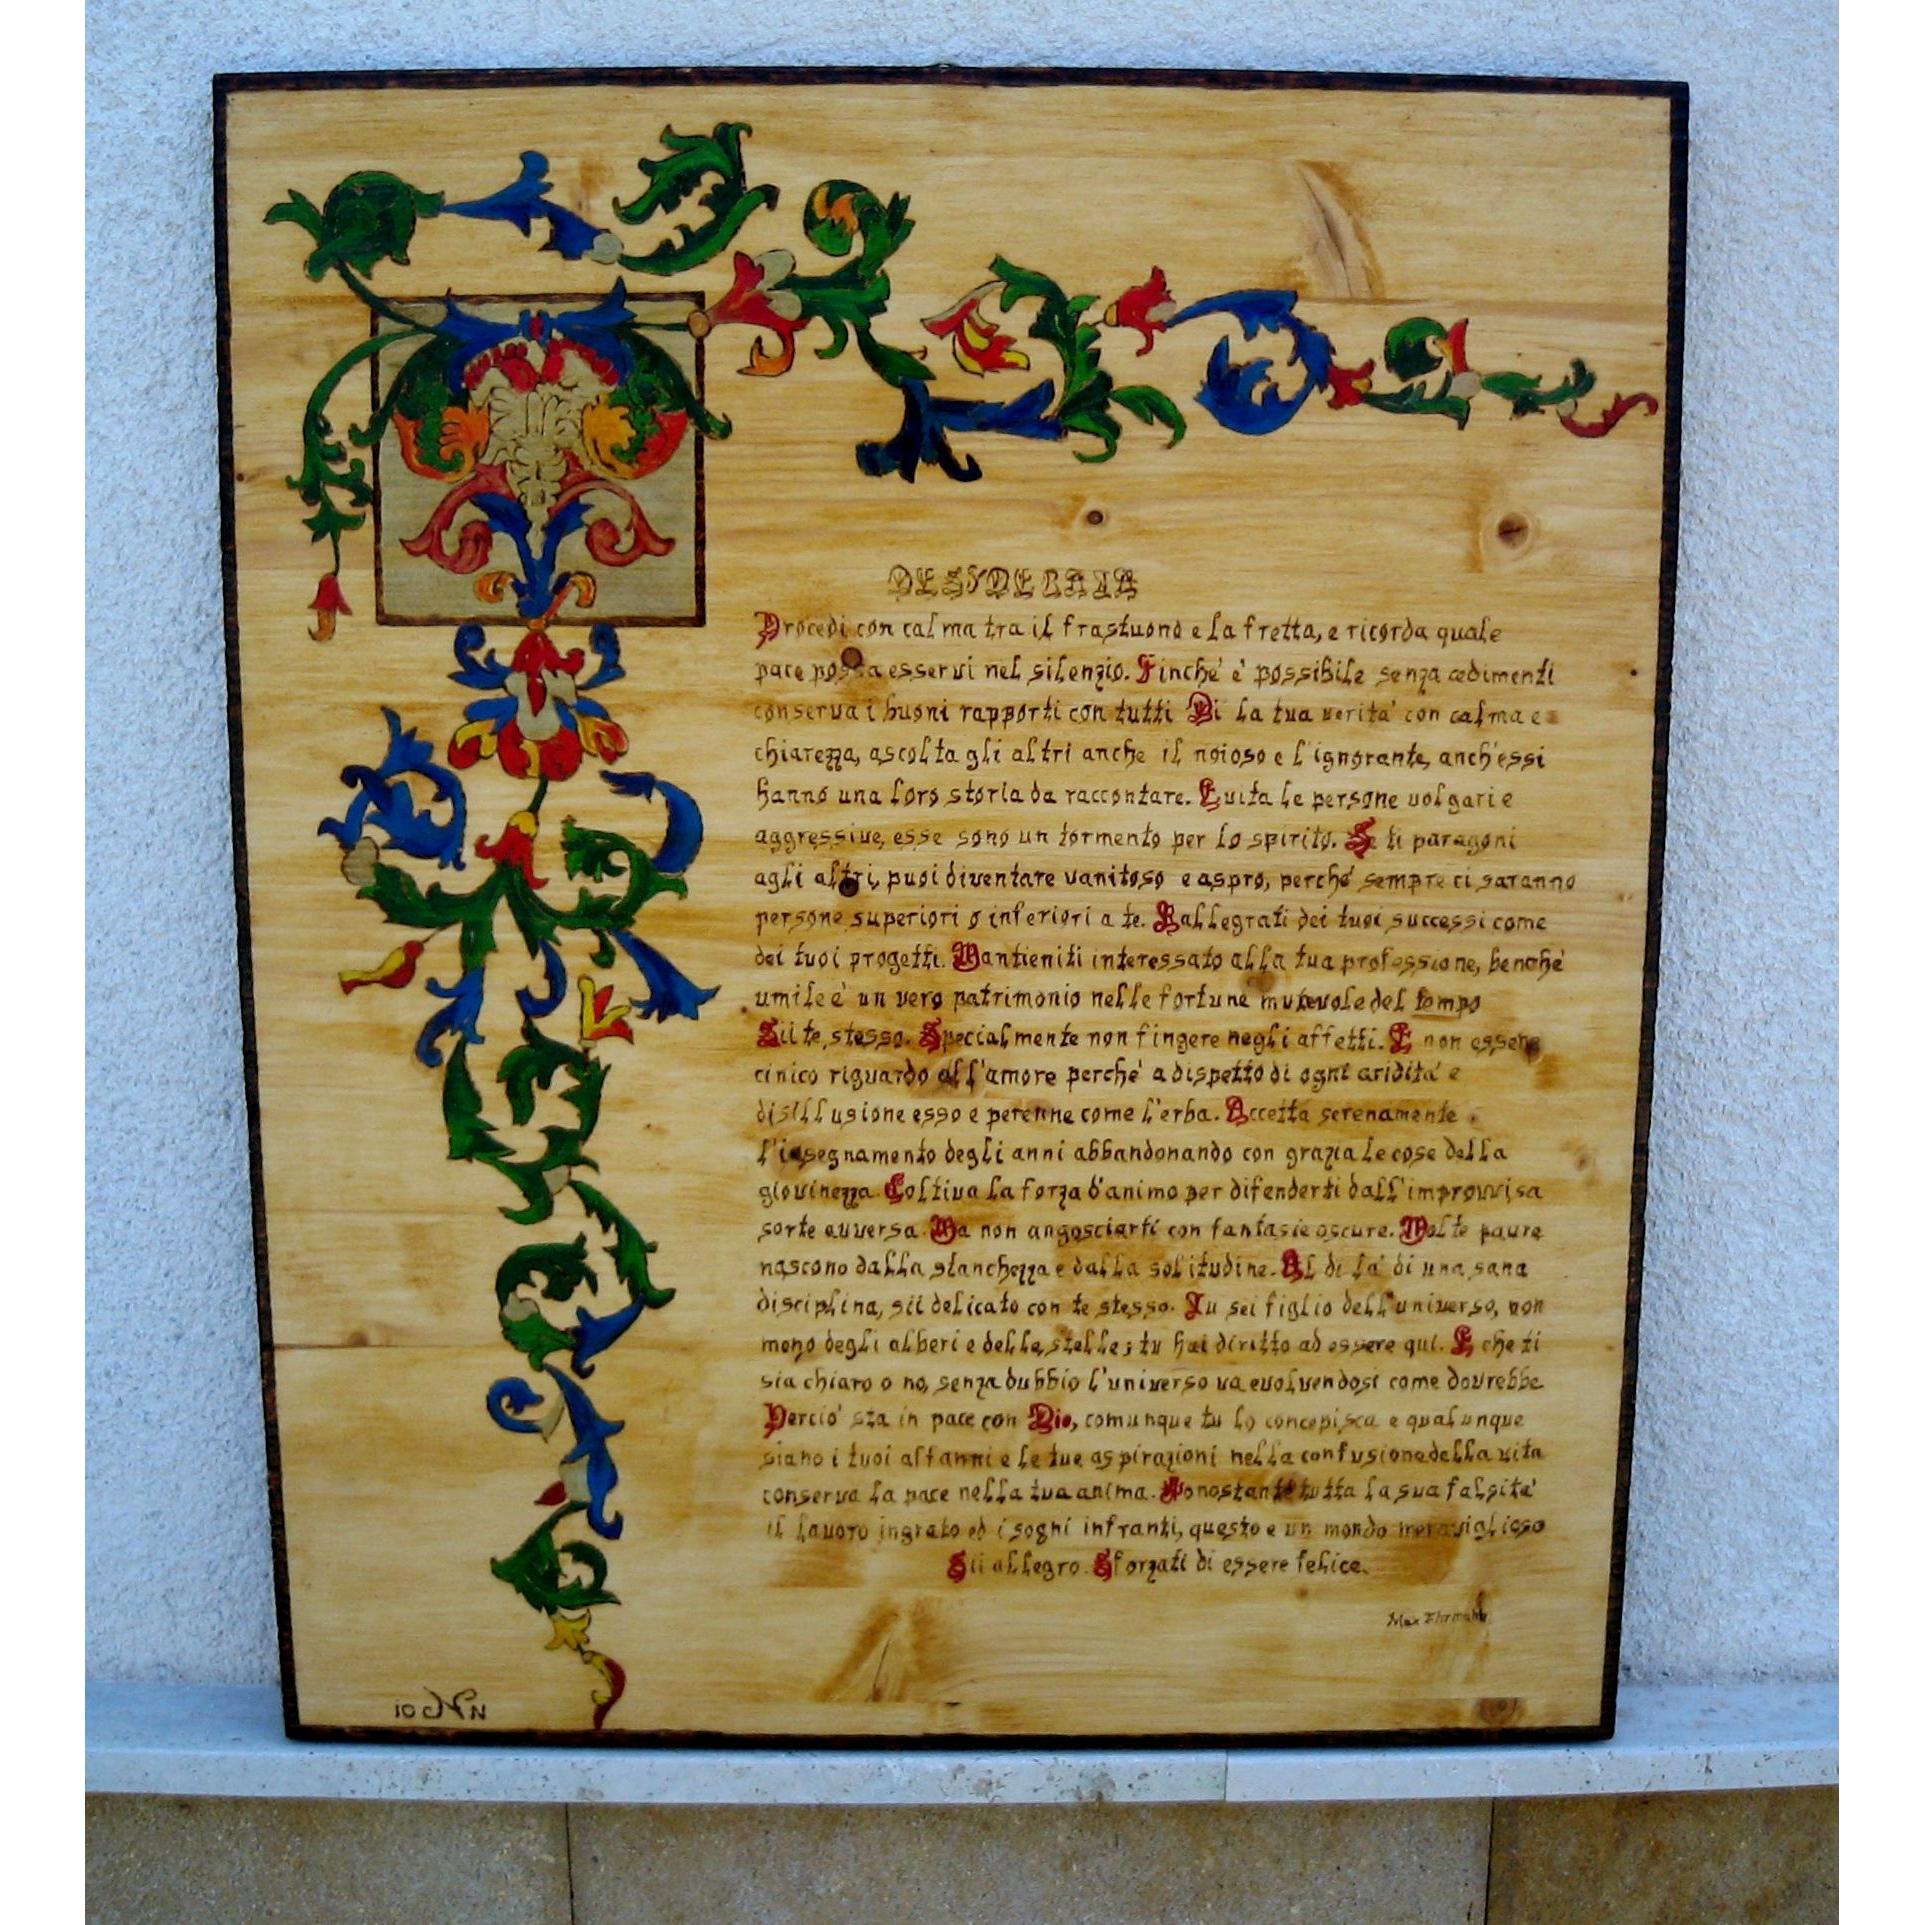 DESYDERATA
Procedi con calma tra il frastuono e la fretta, e ricorda quale
pace possa esservi nel silenzio. Finche' è possibile senza cedimenti
conserva i buoni rapporti con tutti Di la tua verita' con calma e
chiarezza, ascolta gli altri anche il noioso e l'ignorante, anch'essi
hanno una loro storia da raccontare. Evita le persone volgari e
aggressive, esse sono un tormento per lo spirito. Se ti paragoni
agli altri, puoi diventare vanitoso e aspro, perche' sempre ci saranno
persone superiori o inferiori a te. Rallegrati dei tuoi successi come
dei tuoi progetti. Mantieniti interessato alla tua professione, benche'
umile e' un vero patrimonio nelle fortune mutevole del tempo
Sii te stesso. Specialmente non fingere negli affetti. E non essere
cinico riguardo all'amore perche' a dispetto di ogni aridita' e
disillusione esso e perenne come l'erba. Accetta serenamente
l'insegnamento degli anni abbandonando con grazia le cose della
giovinezza. Coltiva la forza d'animo per difenderti dall'improvvisa
sorte avversa. Ma non angosciarti con fantasie oscure. Molte paure
nascono dalla stanchezza e dalla solitudine. Al di la' di una sana
disciplina, sii delicato con te stesso. Tu sei figlio dell'universo, non
meno degli alberi e delle stelle; tu hai diritto ad essere qui. E che ti
sia chiaro o no, senza dubbio l'universo va evolvendosi come dovrebbe
Percio' sta in pace con Dio, comunque tu lo concepisca e qualunque
siano i tuoi affanni e le tue aspirazioni nella confusione della vita
conserva la pace nella tua anima. Nonostante tutta la sua falsita'
il lavoro ingrato ed i sogni infranti, questo e un mondo meraviglioso
Sii allegro. Sforzati di essere felice.
Max Ehrmann